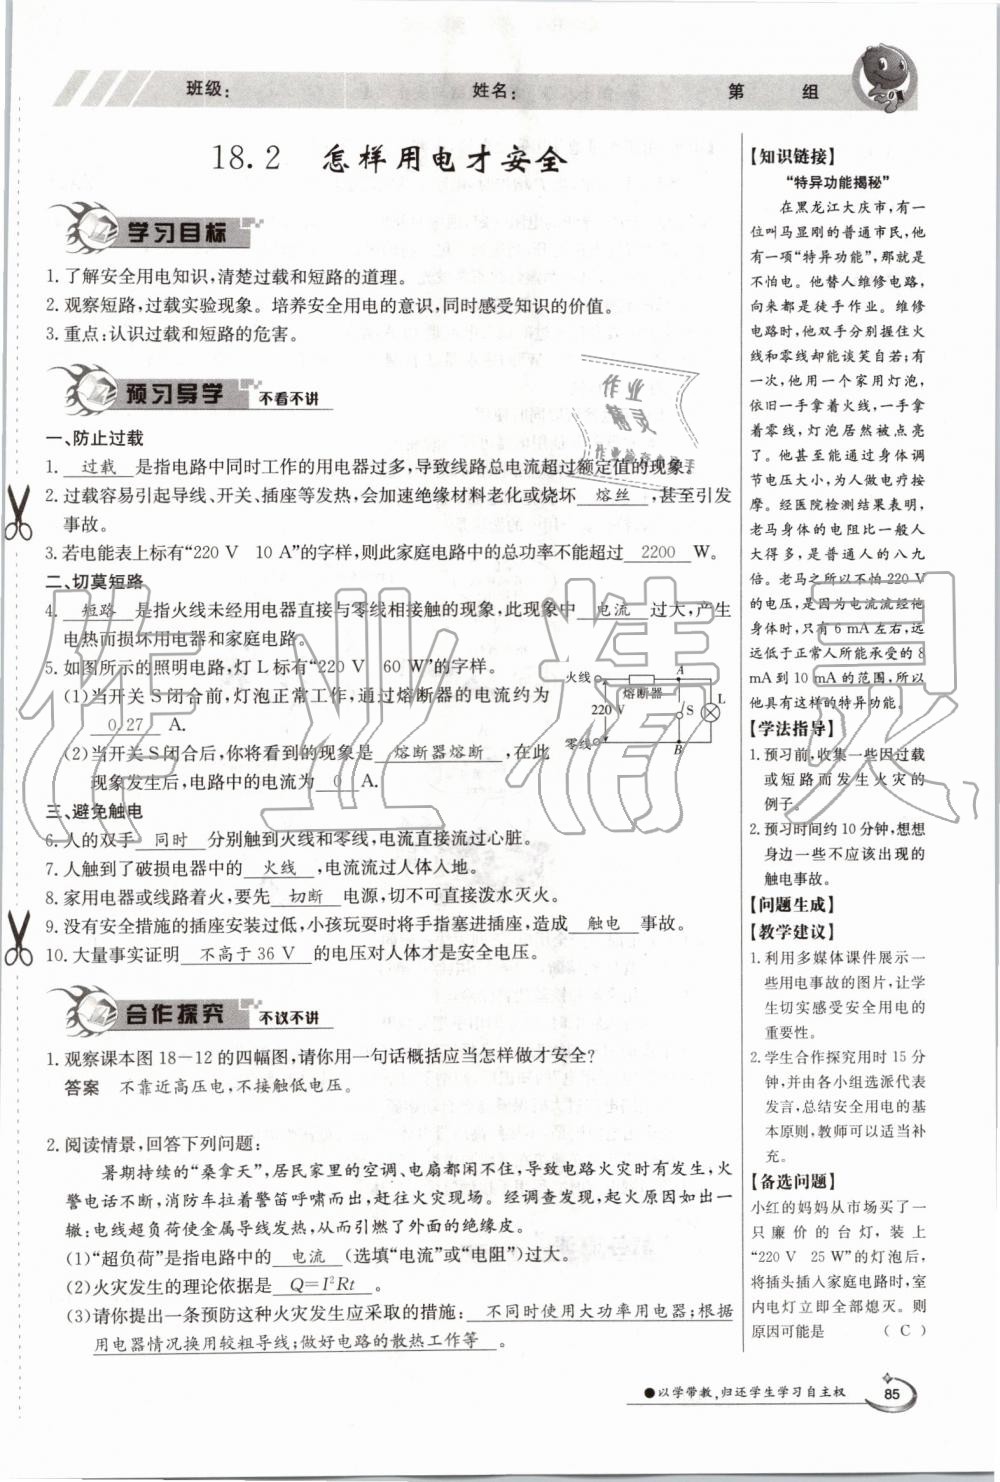 班级：
姓名：
第 组
18.2 怎样用电才安全
学习目标
1. 了解安全用电知识，清楚过载和短路的道理。
2. 观察短路，过载实验现象。培养安全用电的意识，同时感受知识的价值。
3. 重点：认识过载和短路的危害。
预习导学 不看不讲
一、防止过载
1. 过载 是指电路中同时工作的用电器过多，导致线路总电流超过额定值的现象。
2. 过载容易引起导线、开关、插座等发热，会加速绝缘材料老化或烧坏 熔丝 ，甚至引发
事故。
3. 若电能表上标有“220 V 10 A”的字样，则此家庭电路中的总功率不能超过 2200 W。
二、切莫短路
4. 短路 是指火线未经用电器直接与零线相接触的现象，此现象中 电流 过大，产生
电热而损坏用电器和家庭电路。
5. 如图所示的照明电路，灯 L 标有“220 V 60 W”的字样。
(1)当开关 S 闭合前，灯泡正常工作，通过熔断器的电流约为
0.27 A.
(2)当开关 S 闭合后，你将看到的现象是 熔断器熔断 ，在此
现象发生后，电路中的电流为 0 A.
火线
熔断器
A
220 V
S
L
零线
B
三、避免触电
6. 人的双手 同时 分别触到火线和零线，电流直接流过心脏。
7. 人触到了破损电器中的 火线 ，电流流过人体入地。
8. 家用电器或线路着火，要先 切断 电源，切不可直接泼水灭火。
9. 没有安全措施的插座安装过低，小孩玩耍时将手指塞进插座，造成 触电 事故。
10. 大量事实证明 不高于 36 V 的电压对人体才是安全电压。
合作探究 不议不讲
1. 观察课本图 18－12 的四幅图，请你用一句话概括应当怎样做才安全？
答案 不靠近高压电，不接触低电压。
2. 阅读情景，回答下列问题：
暑期持续的“桑拿天”，居民家里的空调、电扇都闲不住，导致电路火灾时有发生，火
警电话不断，消防车拉着警笛呼啸而出，赶往火灾现场。经调查发现，起火原因如出一
辙：电线超负荷使金属导线发热，从而引燃了外面的绝缘皮。
(1)“超负荷”是指电路中的 电流 （选填“电流”或“电阻”）过大。
(2)火灾发生的理论依据是 Q=I²Rt 。
(3)请你提出一条预防这种火灾发生应采取的措施： 不同时使用大功率用电器；根据
用电器情况换用较粗导线；做好电路的散热工作等 。
【知识链接】
“特异功能揭秘”
在黑龙江大庆市，有一
位叫马显刚的普通市民，他
有一项“特异功能”，那就是
不怕电。他替人维修电路，
向来都是徒手作业。维修
电路时，他双手分别握住火
线和零线却能谈笑自若；有
一次，他用一个家用灯泡，
依旧一手拿着火线，一手拿
着零线，灯泡居然被点亮
了。他甚至能用身体调
节电压大小，为人做电疗按
摩。经医院检测结果表明，
老马身体的电阻比一般人
大得多，是普通人的八九
倍。老马之所以不怕 220 V
的电压，是因为电流流经他
身体时，只有 6 mA 左右，远
远低于正常人所能承受的 8
mA 到 10 mA 的范围，所以
他具有这样的特异功能。
【学法指导】
1. 预习前，收集一些因过载
或短路而发生火灾的
例子。
2. 预习时间约 10 分钟，想想
身边一些不应该出现的
触电事故。
【问题生成】
【教学建议】
1. 利用多媒体课件展示一
些用电事故的图片，让学
生切实感受安全用电的
重要性。
2. 学生合作探究用时 15 分
钟，并由各小组选派代表
发言，总结安全用电的基
本原则，教师可以适当补
充。
【备选问题】
小红的妈妈从市场买了一
只廉价的台灯，装上
“220 V 25 W”的灯泡后，
将插头插入家庭电路时，室
内电灯立即全部熄灭。则
原因可能是 （ C ）
●以学带教，归还学生学习自主权
85
作业精灵
作业
精灵